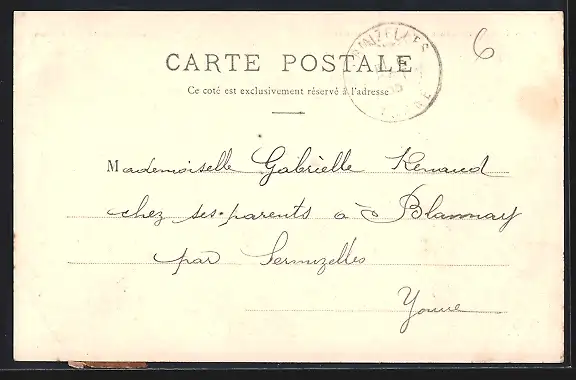 6
CARTE POSTALE
Ce coté est exclusivement réservé à l'adresse
Mademoiselle Gabrielle Renaud
chez ses parents à Blannay
par Sermizelles
Yonne